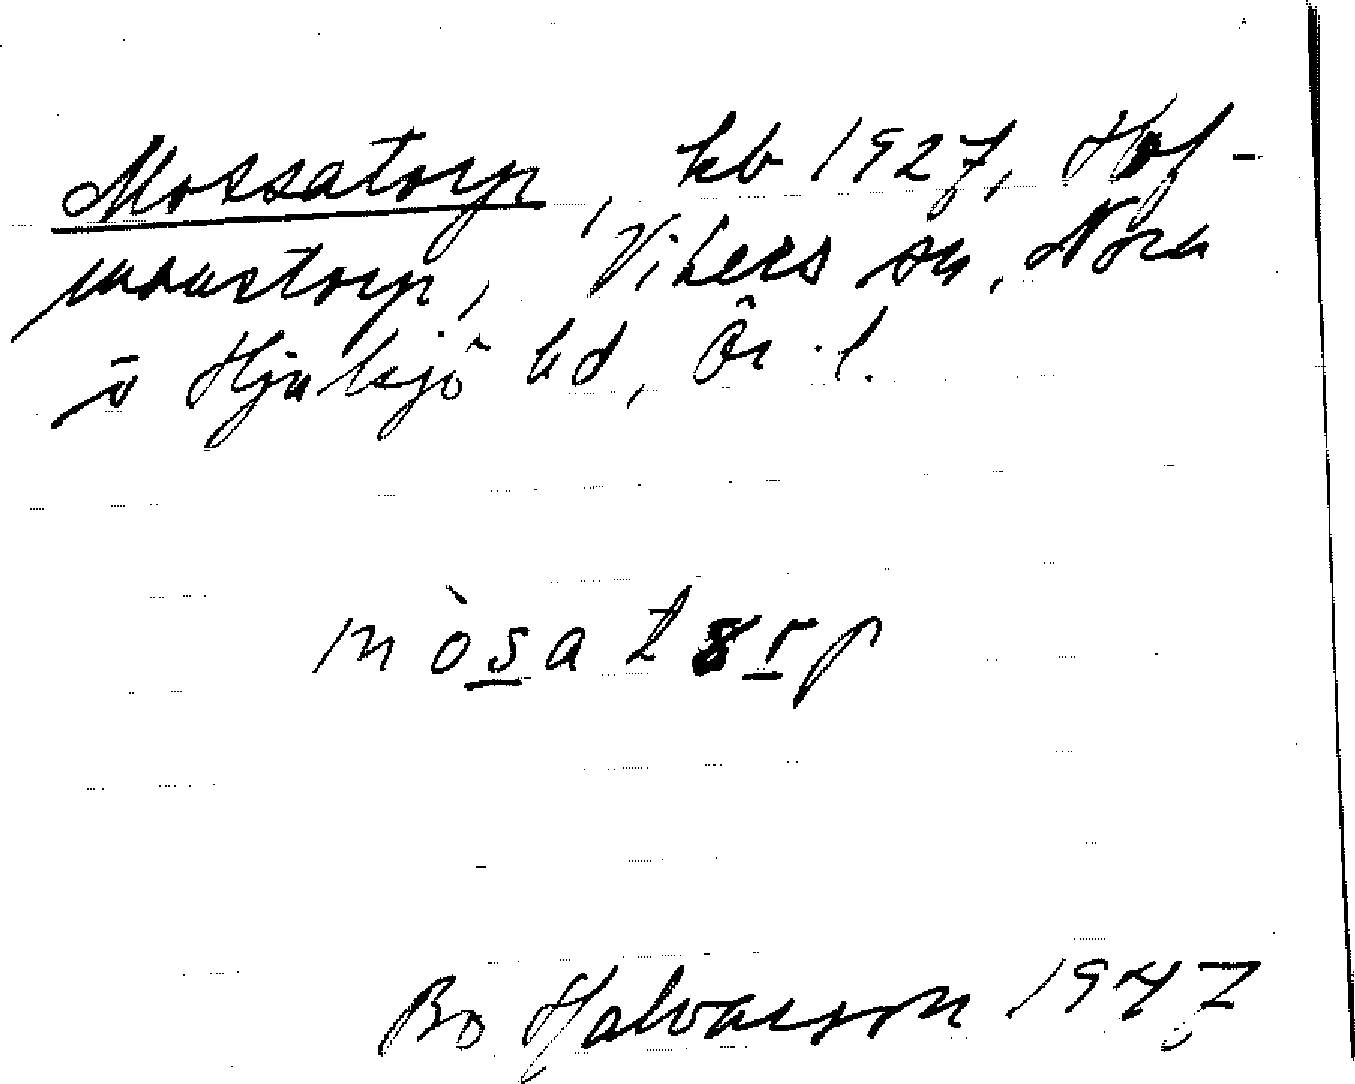 Mossatorp, kb 1927, Hof-
manstorp, Vikers sn, Nora
o Hjulsjö hd, Ör. l.
mòsatɷrp
Bo Halvarsson 1947